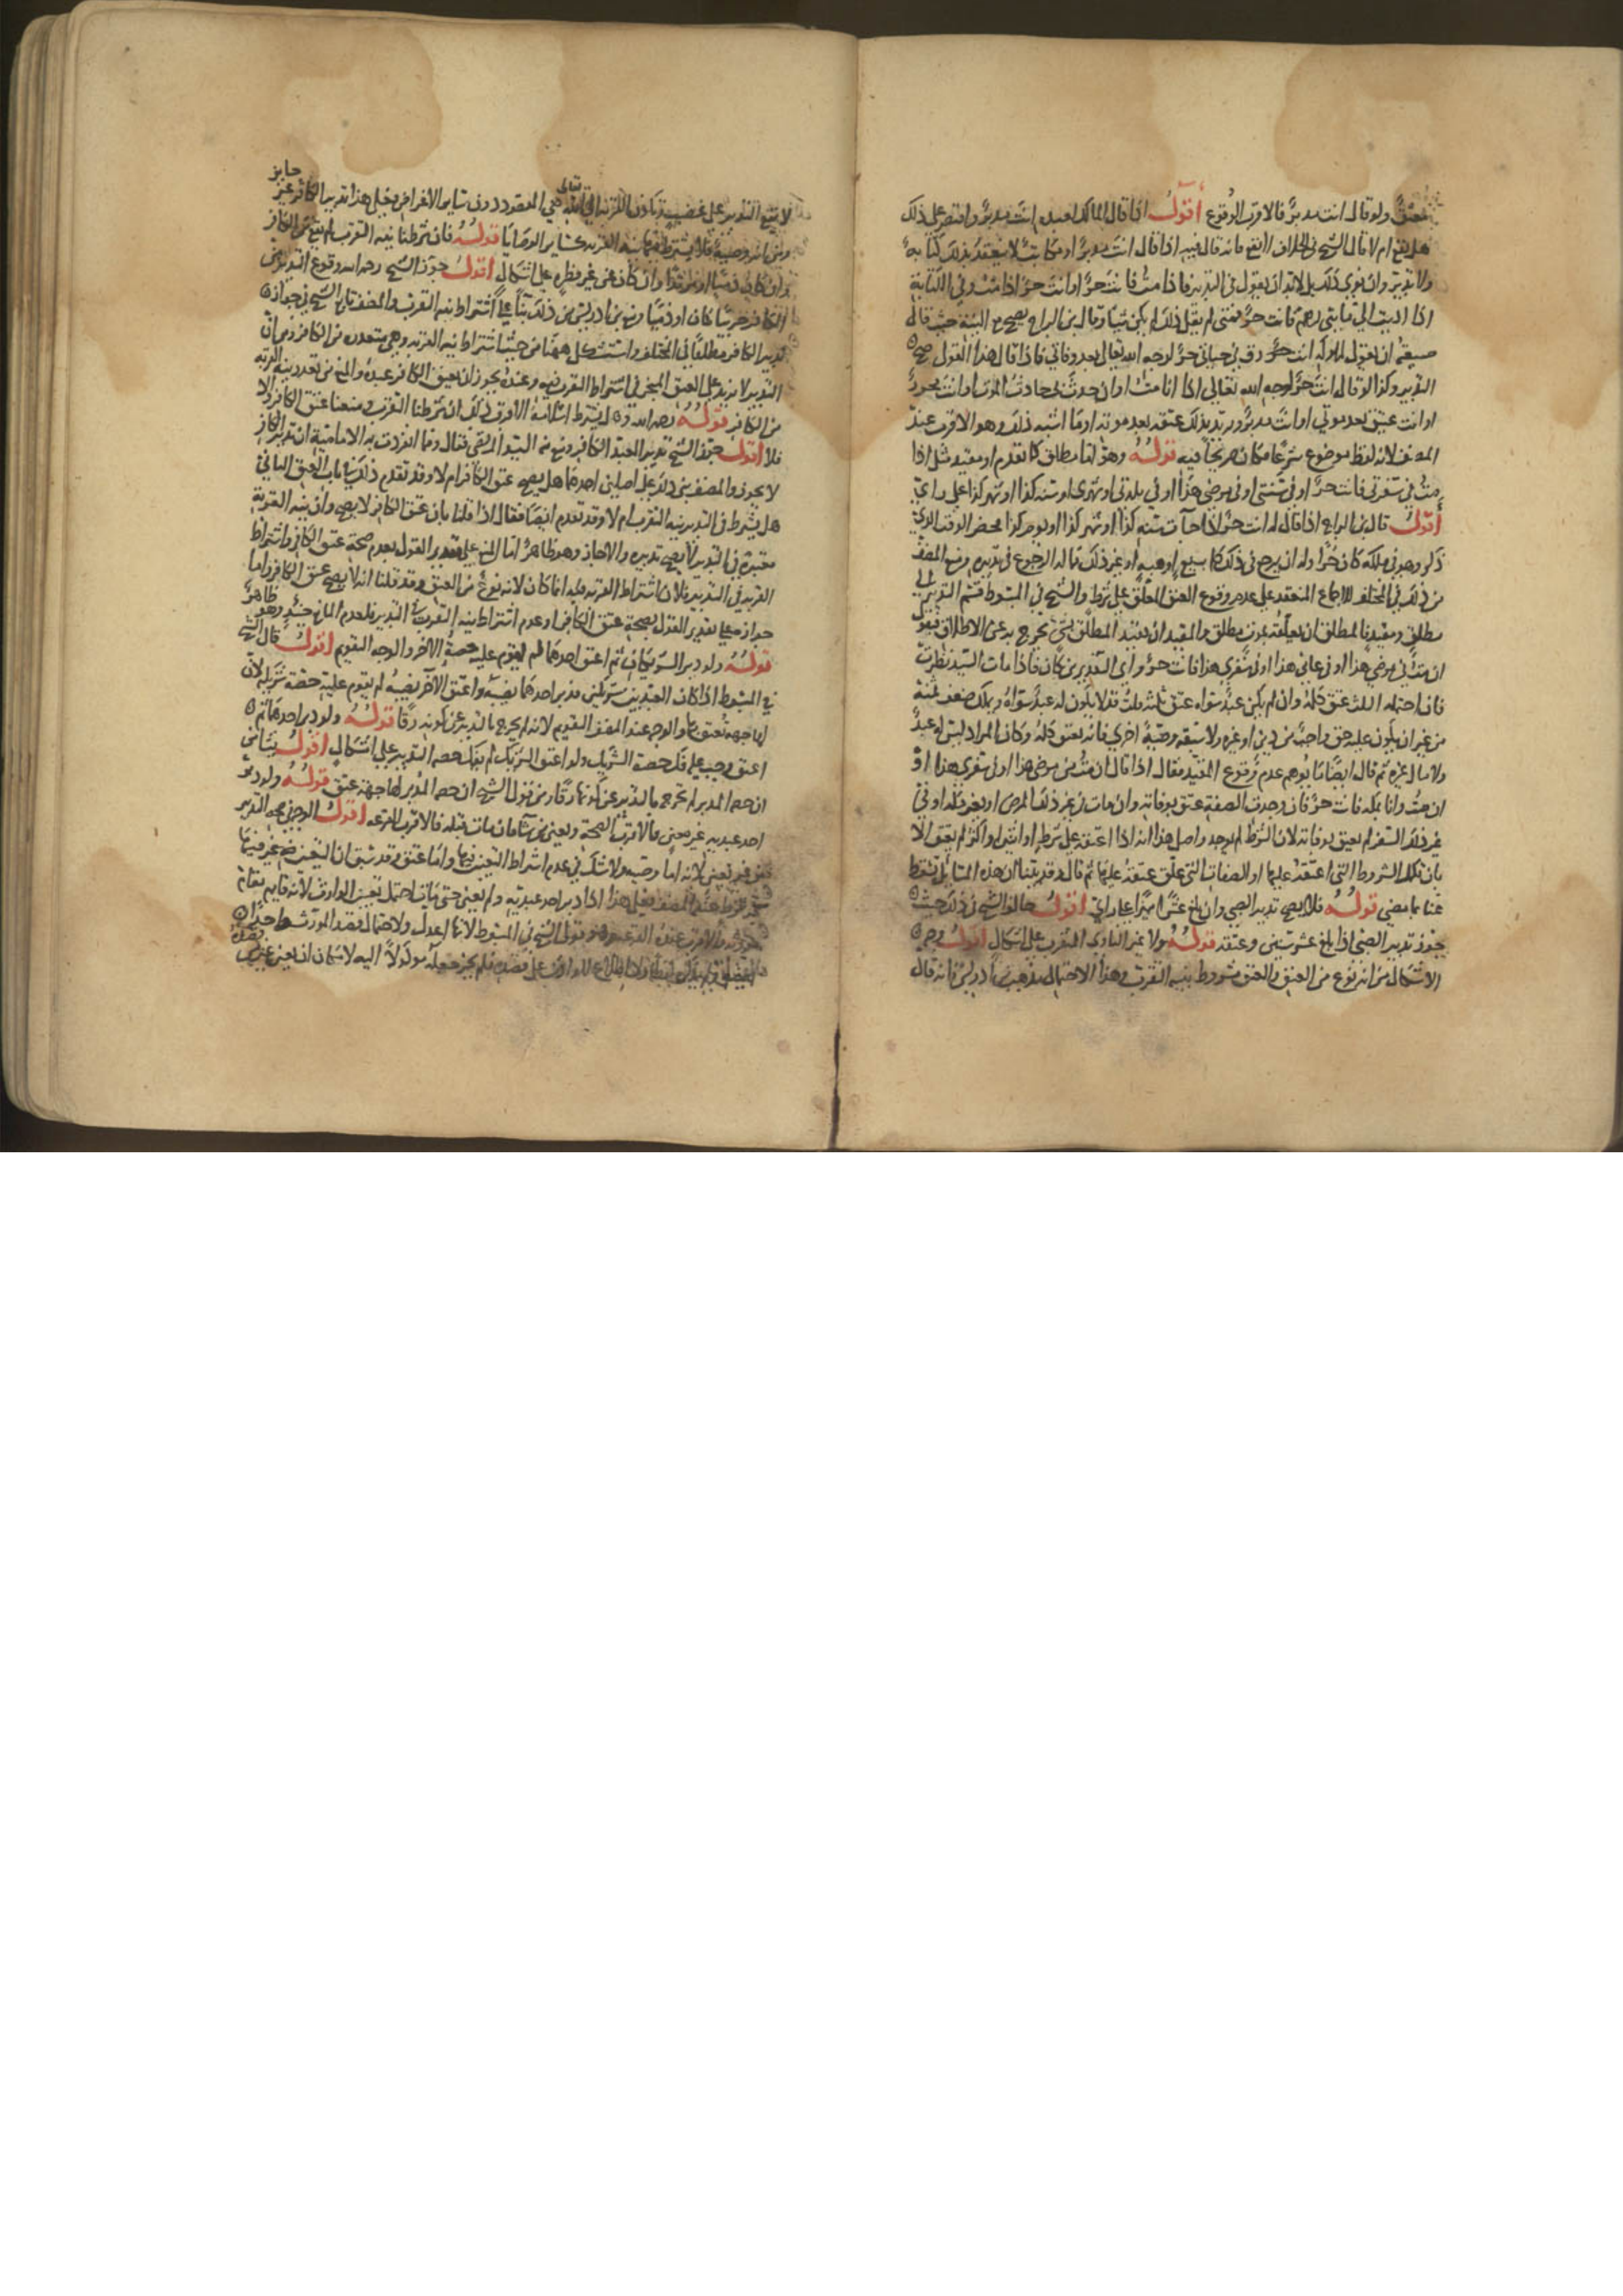 معتق ولو قال انت مدبر فالاقرب الوقوع أقول اذا قال المالك لعبده انت مدبر واقتصر على ذلك
هل يقع ام لا قال الشيخ في الخلاف لا يقع فانه قال فيه اذا قال انت مدبر او مكاتب لا ينعقد بذلك كتابة
ولا تدبير وان نوى ذلك بل لابد ان يقول في التدبير فاذا مت فانت حر او انت حر اذا مت وفي الكتابة
اذا اديت الي مالي فانت حر فمتى لم يقل ذلك لم يكن شيئا وقال ابن البراج يصح مع النية حيث قال
صيغته ان يقول لمملوكه انت حر في حياتي حر لوجه الله تعالى بعد وفاتي فاذا قال هذا القول صح
التدبير وكذا لو قال له انت حر لوجه الله تعالى اذا انا مت او ان حدث بي حادث الموت او انت محرر
او انت عتيق بعد موتي او انت مدبر ويريد بذلك عتقه بعد موته او ما اشبه ذلك وهو الاقرب عند
المصنف لانه لفظ موضوع شرعا فكان صريحا فيه قوله وهو اما مطلق كما تقدم او مقيد مثل اذا
مت في سفري فانت حر او في سنتي او في مرضي هذا او في بلدتي او شهري او سنة كذا او شهر كذا على راي
أقول قال ابن البراج اذا قال له انت حر اذا جات سنة كذا او شهر كذا او يوم كذا فحضر الوقت الذي
ذكر وهو في ملكه كان حرا وله ان يرجع في ذلك كله ببيع او هبة او غير ذلك كما له الرجوع في تدبيره ومنع المصنف
من ذلك في المختلف للاجماع المنعقد على عدم وقوع العتق المعلق على شرط والشيخ في المبسوط قسم التدبير الى
مطلق ومقيد فالمطلق ان يعلقه بموت مطلق والمقيد ان يقيد المطلق بشي يخرج به عن الاطلاق فيقول
ان مت في مرضي هذا او في عامي هذا او في سفري هذا فانت حر واي التقديرين كان فاذا مات السيد نظرت
فان احتمله الثلث عتق كله وان لم يكن عبد سواه عتق ثلثه قد لا يكون له عبد سواه ويملك ضعف ثمنه
من غير ان يكون عليه حق واجب من دين او غيره ولا سبقه وصية اخرى فانه يعتق كله وكان المراد ليس له عبد
ولا مال غيره ثم قال ايضا ما يوهم عدم وقوع المقيد فقال اذا قال ان مت من مرضي هذا او في سفري هذا او
ان مت وانا بمكة فانت حر فان وجدت الصفة عتق بوفاته وان مات في غير ذلك المرض او بغير مكة او في
غير ذلك السفر لم يعتق بوفاته لان الشرط لم يوجد واصل هذا انه اذا اعتقه على شرط او اثنين او اكثر لم يعتق الا
بان تكمل الشروط التي اعتقه عليها او الصفات التي علق عتقه عليها ثم قال وقد بينا ان هذه المسايل تسقط
عنا بما مضى قوله فلا يصح تدبير الصبي وان بلغ عشرا مميزا على راي أقول خالف الشيخ في ذلك حيث
جوز تدبير الصبي اذا بلغ عشر سنين وعتقه قوله ولا غير الناوي المتقرب على اشكال أقول وجه
الاشكال من انه نوع من العتق والعتق مشروط بنية التقرب وهذا الاحتمال مذهب ابن ادريس فانه قال
لا يقع التدبير على غضب ويكون القربة الى الله تعالى هي المقصود دون ساير الاغراض فعلى هذا تدبير الكافر غير جايز
ومن انه وصية فلا يشترط فيها نية القربة كساير الوصايا قوله فان شرطنا نية التقرب لم يقع من الكافر
وان كان ذميا او مرتدا وان كان عن غير فطرة على اشكال أقول جوز الشيخ رحمه الله وقوع التدبير من
الكافر حربيا كان او ذميا ومنع ابن ادريس من ذلك بناء على اشتراط نية التقرب والمصنف تابع الشيخ في جواز
تدبير الكافر مطلقا في المختلف واستشكل ههنا من حيث اشتراط نية القربة وهي متعذرة من الكافر ومن ان
التدبير لا يزيد على العتق المنجز في اشتراط التقرب فيه وعنده يجوز ان يعتق الكافر عبده والمانع من تعذر نية القربة
من الكافر قوله
فلا أقول جوز الشيخ تدبير العبد الكافر ومنع منه السيد المرتضى فقال ومما انفردت به الامامية ان تدبير الكافر
لا يجوز والمصنف بنى ذلك على اصلين احدهما هل يصح عتق الكافر ام لا وقد تقدم ذلك في باب العتق الثاني
هل يشترط في التدبير نية التقرب ام لا وقد تقدم ايضا فقال اذا قلنا بان عتق الكافر لا يصح وان نية القربة
معتبرة في التدبير لا يصح تدبيره والا جاز وهو ظاهر اما المنع على تقدير القول بعدم صحة عتق الكافر واشتراط
القربة في التدبير فلان اشتراط القربة فيه انما كان لانه نوع من العتق وقد قلنا انه لا يصح عتق الكافر واما
جوازه على تقدير القول بصحة عتق الكافر او عدم اشتراط نية التقرب في التدبير فلعدم المانع حينئذ وهو ظاهر
قوله ولو دبر الشريكان ثم اعتق احدهما لم يقوم عليه حصة الاخر والوجه التقويم أقول قال الشيخ
في المبسوط اذا كان العبد بين شريكين فدبر احدهما نصيبه واعتق الاخر نصيبه لم يقوم عليه حصة شريكه لان
لها جهة تعتق بها والوجه عند المصنف التقويم لانه لم يخرج بالتدبير عن كونه رقا قوله ولو دبر احدهما ثم
اعتق وجب عليه فك حصة الشريك ولو اعتق الشريك لم يفك حصة التدبير على اشكال أقول ينشا من
ان حصة المدبر لم تخرج بالتدبير عن كونها رقا ومن قول الشيخ ان حصة المدبر لها جهة عتق قوله ولو دبر
احد عبديه غير معين فالاقرب الصحة ويعين من شا فان مات قبله فالاقرب القرعة أقول الوجه في صحة التدبير
من غير تعيين لانه اما وصية ولا شك في عدم اشتراط التعيين فيها واما عتق وقد سبق ان التعيين غير
شرط عند المصنف فعلى هذا اذا دبر احد عبديه ولم يعين حتى مات احتمل تعيين الوارث لانه قايم مقام
مورثه والاقرب عنده القرعة وهو قول الشيخ في المبسوط لانها اعدل ولاحتمال قصد المورث واحدا